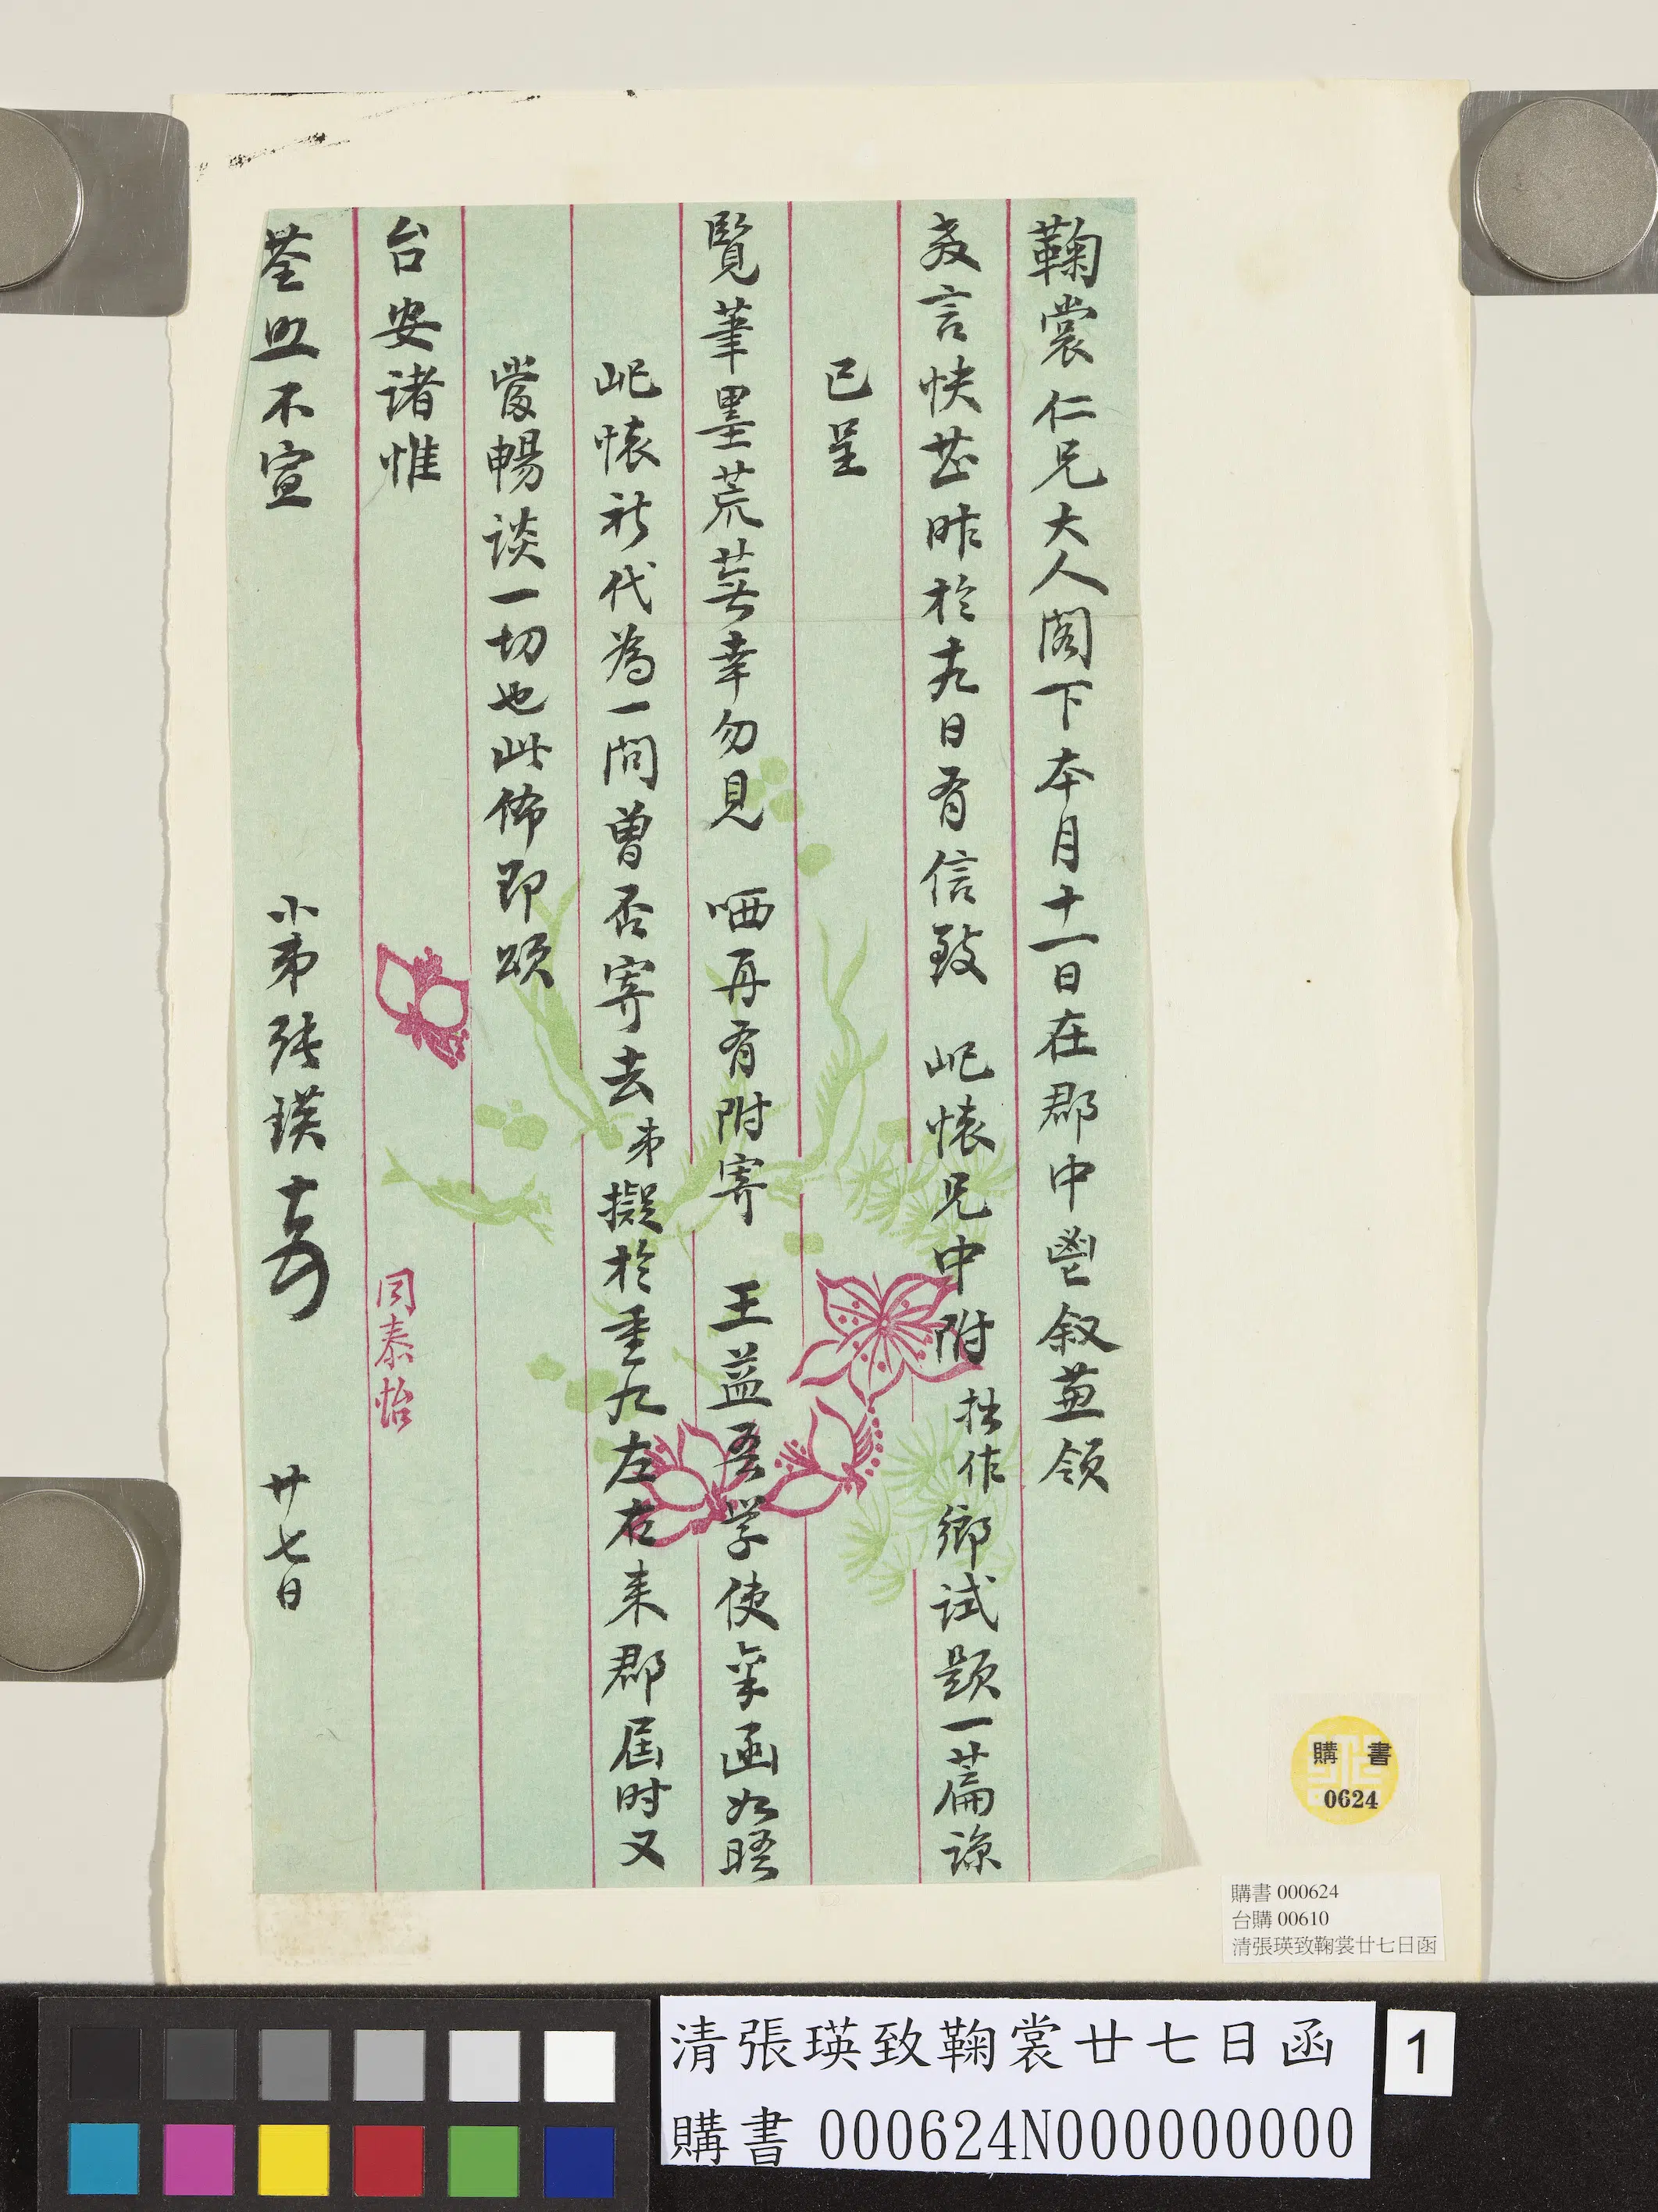 鞠裳仁兄大人閣下本月十一日在郡中鬯叙兼領
教言快甚昨於十九日有信致 屺懷兄中附 拙作鄉試題一篇諒
已呈
覽筆墨荒蕪幸勿見 哂再有附寄 王益吾學使一函如晤
屺懷祈代為一問曾否寄去弟擬於重九左右来郡屆时又
當暢談一切也此佈即頌
台安诸惟
荃照不宣
小弟張瑛 廿七日
同泰怡
購書
0624
購書 000624
台購 00610
清張瑛致鞠裳廿七日函
清張瑛致鞠裳廿七日函
購書 000624N000000000
1